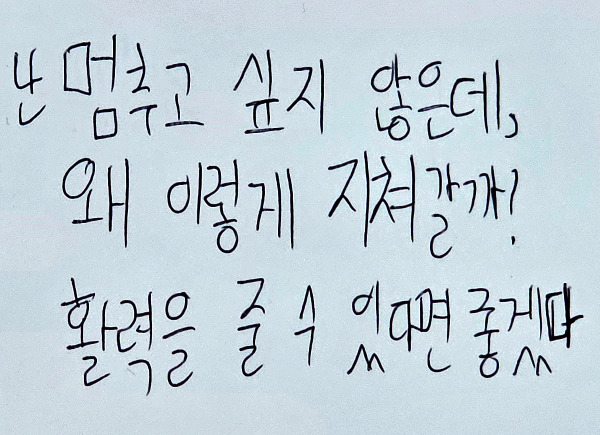 난 멈추고 싶지 않은데,
왜 이렇게 지쳐갈까?
활력을 줄 수 있다면 좋겠다